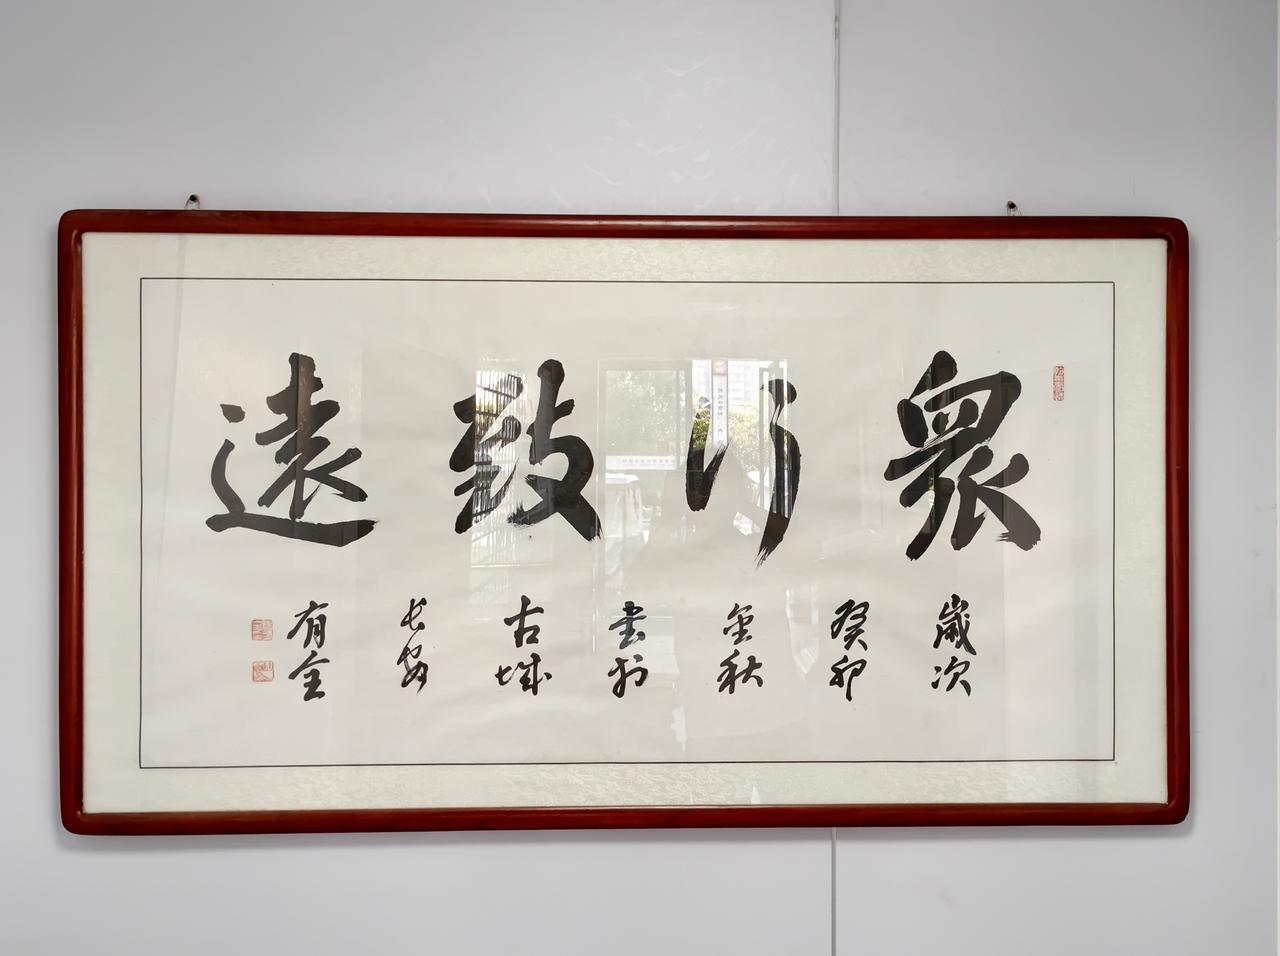 眾行致遠
歲次
癸卯
金秋
书於
古城
长安
有全